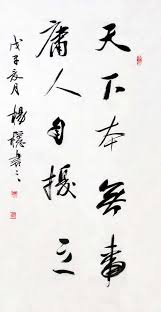 天下本無事
庸人自擾之
戊子夏月 楊 書